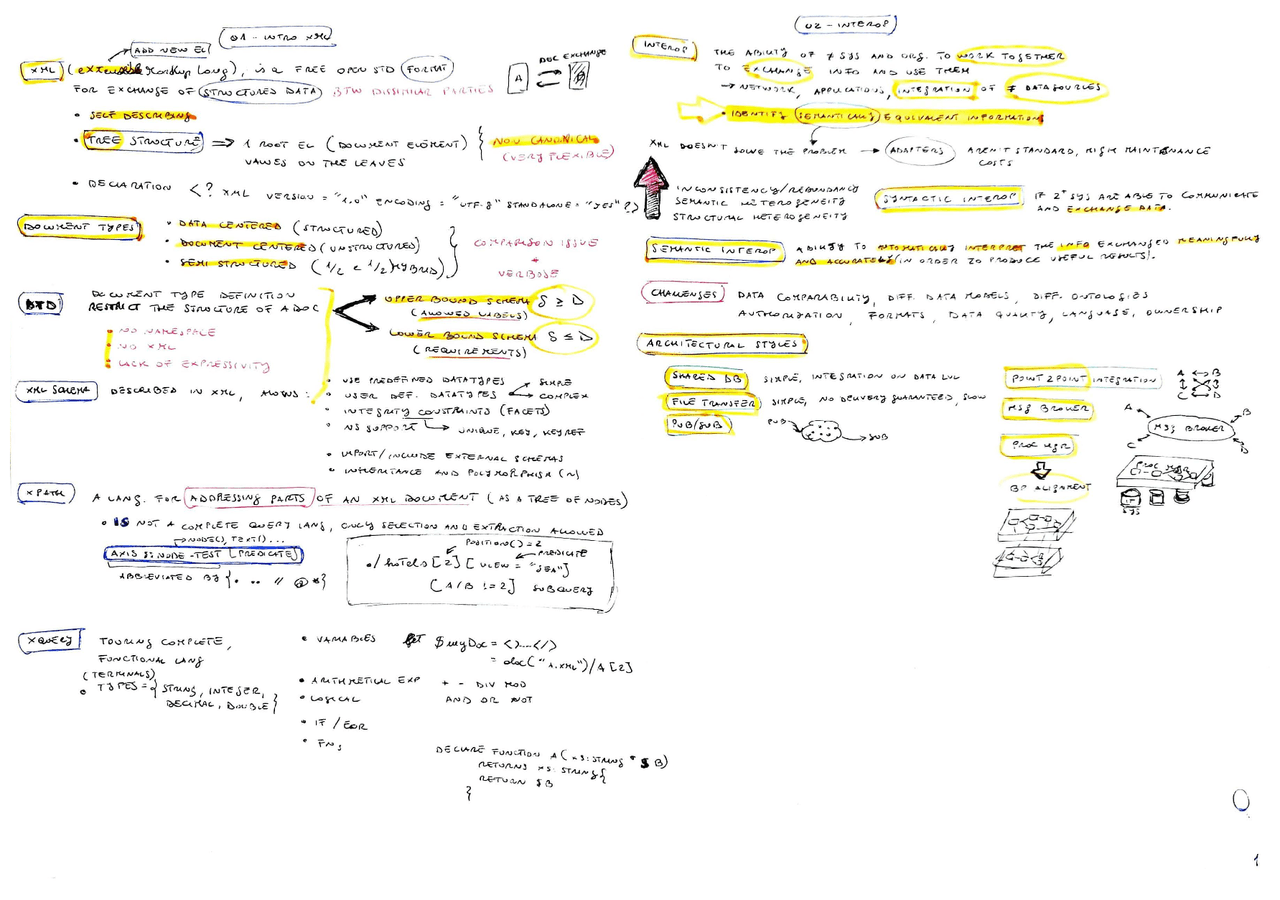 01 - INTRO XML
ADD NEW EL
XML (eXtensible Markup Lang), IS A FREE OPEN STD FORMAT
FOR EXCHANGE OF STRUCTURED DATA BTW DISSIMILAR PARTIES
DOC EXCHANGE
A
B
• SELF DESCRIBING
• TREE STRUCTURE => 1 ROOT EL (DOCUMENT ELEMENT)
VALUES ON THE LEAVES
NON CANONICAL
(VERY FLEXIBLE)
• DECLARATION <? XML VERSION = "1.0" ENCODING = "UTF-8" STANDALONE = "YES" ?>
DOCUMENT TYPES
• DATA CENTERED (STRUCTURED)
• DOCUMENT CENTERED (UNSTRUCTURED)
• SEMI STRUCTURED (1/2 E 1/2) HYBRID
COMPARISON ISSUE
+
VERBOSE
DTD
DOCUMENT TYPE DEFINITION
RESTRICT THE STRUCTURE OF A DOC
UPPER BOUND SCHEMA S ≥ D
(ALLOWED LABELS)
LOWER BOUND SCHEMA S ≤ D
(REQUIREMENTS)
• NO NAMESPACE
• NO XML
• LACK OF EXPRESSIVITY
XML SCHEMA DESCRIBED IN XML, ALLOWS:
• USE PREDEFINED DATATYPES
• USER DEF. DATATYPES
SIMPLE
COMPLEX
• INTEGRITY CONSTRAINTS (FACETS)
• NS SUPPORT
UNIQUE, KEY, KEYREF
• IMPORT/INCLUDE EXTERNAL SCHEMAS
• INHERITANCE AND POLYMORPHISM (~)
XPATH A LANG. FOR ADDRESSING PARTS OF AN XML DOCUMENT (AS A TREE OF NODES)
• IS NOT A COMPLETE QUERY LANG, ONLY SELECTION AND EXTRACTION ALLOWED
NODE(), TEXT()...
AXIS :: NODE-TEST [PREDICATE]
ABBREVIATED BY { . .. // @ * }
POSITION()=2
PREDICATE
./hotels [2] [VIEW = "SEA"]
[A/B != 2] SUBQUERY
XQUERY TOURING COMPLETE,
FUNCTIONAL LANG
(TERMINALS)
• TYPES = { STRING, INTEGER,
DECIMAL, DOUBLE }
• VARIABLES let $myDoc = <>....</>
= doc("A.XML")/A[2]
• ARITHMETICAL EXP + - DIV MOD
• LOGICAL AND OR NOT
• IF / FOR
• FNS
DECLARE FUNCTION A( XS:STRING * $B)
RETURNS XS:STRING {
RETURN $B
}
02 - INTEROP
INTEROP THE ABILITY OF ≠ SYS AND ORG. TO WORK TOGETHER
TO EXCHANGE INFO AND USE THEM
→ NETWORK, APPLICATIONS, INTEGRATION OF ≠ DATA SOURCES
• IDENTIFY SEMANTICALLY EQUIVALENT INFORMATION
XML DOESN'T SOLVE THE PROBLEM → ADAPTERS AREN'T STANDARD, HIGH MAINTENANCE
COSTS
INCONSISTENCY/REDUNDANCY
SEMANTIC HETEROGENEITY
STRUCTURAL HETEROGENEITY
SYNTACTIC INTEROP IF 2+ SYS ARE ABLE TO COMMUNICATE
AND EXCHANGE DATA.
SEMANTIC INTEROP ABILITY TO AUTOMATICALLY INTERPRET THE INFO EXCHANGED MEANINGFULLY
AND ACCURATELY (IN ORDER TO PRODUCE USEFUL RESULTS).
CHALLENGES DATA COMPARABILITY, DIFF. DATA MODELS, DIFF. ONTOLOGIES
AUTHORIZATION, FORMATS, DATA QUALITY, LANGUAGE, OWNERSHIP
ARCHITECTURAL STYLES
SHARED DB SIMPLE, INTEGRATION ON DATA LVL
FILE TRANSFER SIMPLE, NO DELIVERY GUARANTEED, SLOW
PUB/SUB
PUB
SUB
POINT2POINT INTEGRATION
A ↔ B
C ↔ D
MSG BROKER
A
B
MSG BROKER
C
D
PROC MGR
PROC MGR
SYS
BP ALIGNMENT
1